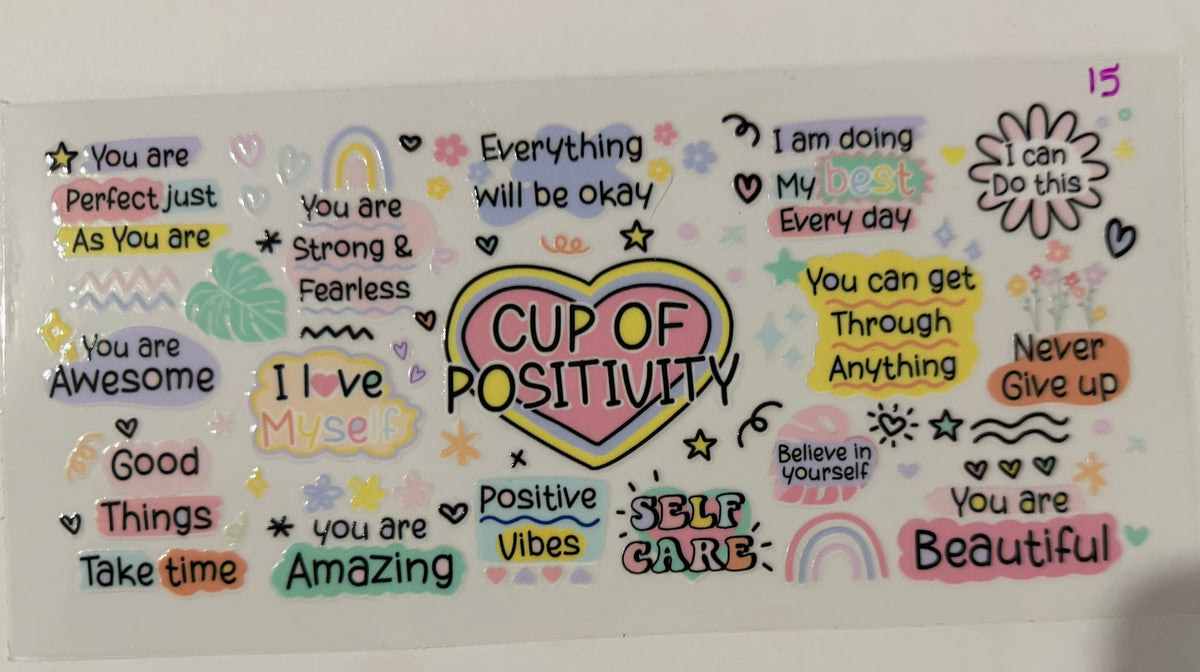 15
You are
Perfect just
As You are
You are
Strong &
Fearless
Everything
will be okay
I am doing
My best
Every day
I can
Do this
You are
Awesome
I love
Myself
CUP OF
POSITIVITY
You can get
Through
Anything
Never
Give up
Good
Things
Take time
you are
Amazing
Positive
Vibes
SELF
CARE
Believe in
yourself
You are
Beautiful